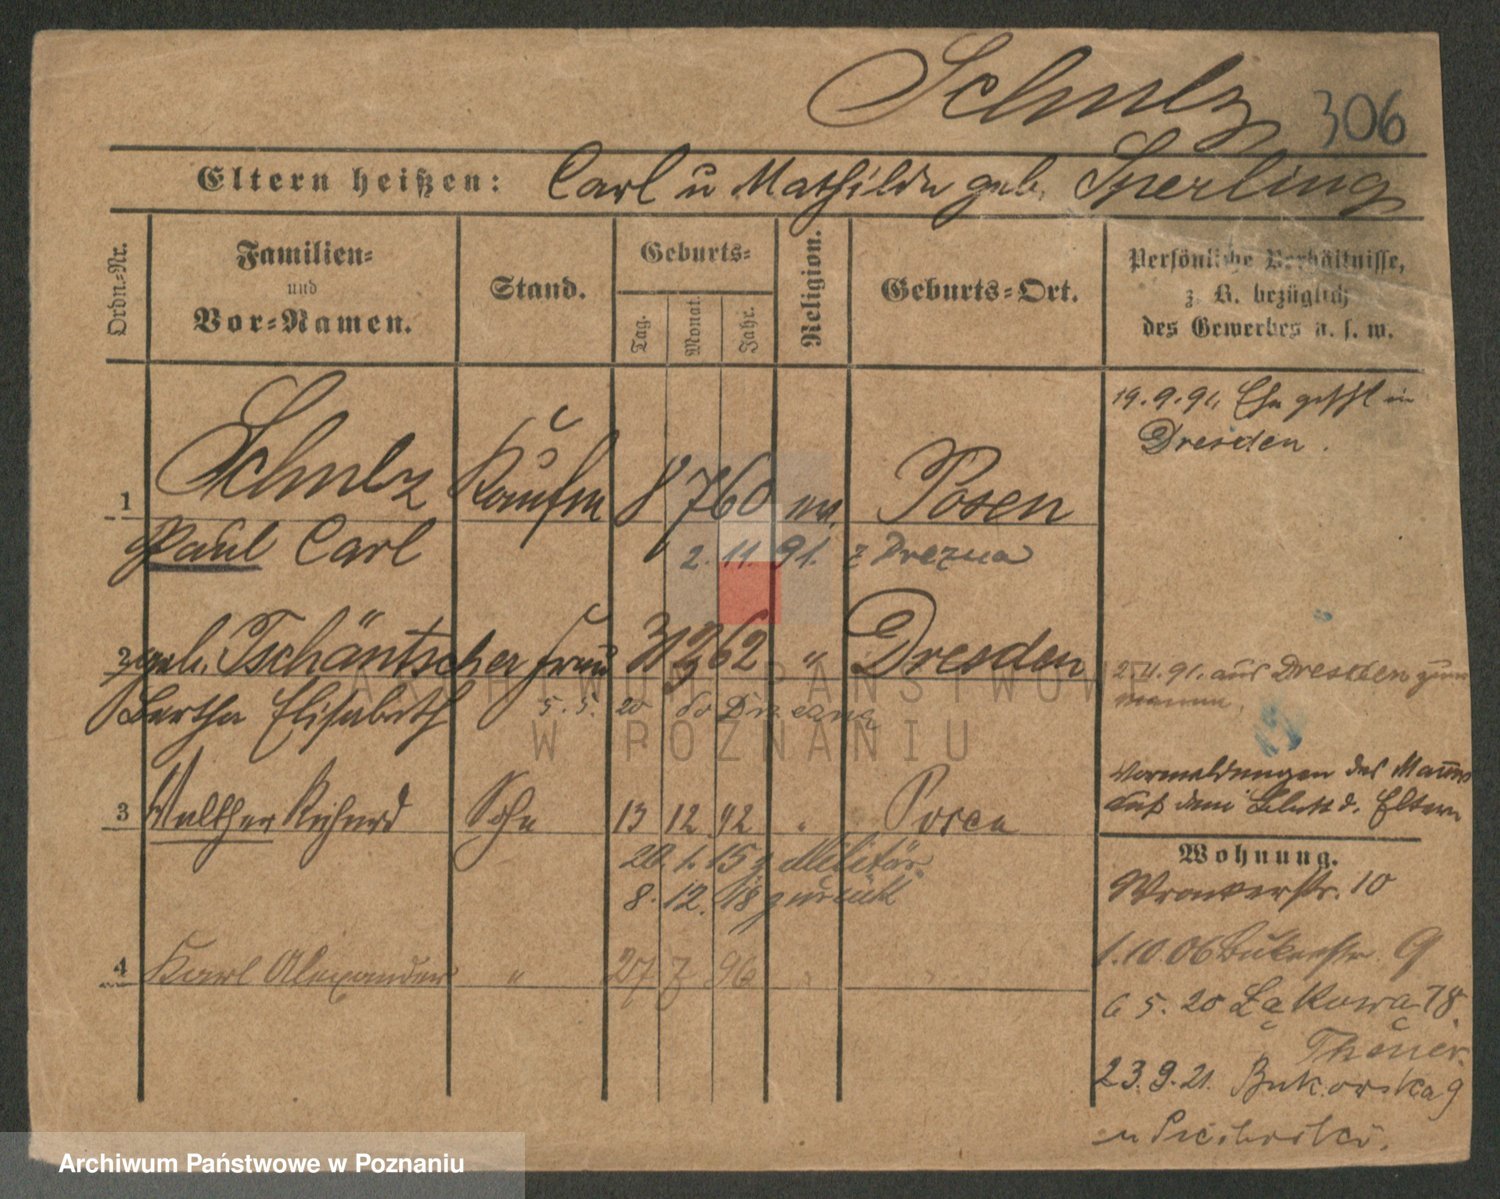 Schulz 306
Eltern heißen: Carl u Mathilde geb. Sperling
Ordn.-Nr.
Familien-
und
Vor-Namen.
Stand.
Geburts-
Tag.
Monat.
Jahr.
Religion.
Geburts-Ort.
Persönliche Verhältnisse,
z. B. bezüglich
des Gewerbes u. s. w.
19.9.91. Ehe geschl in
Dresden.
1 Schulz Kaufm 8 7 60 Posen
Paul Carl
2. 11. 91. z Drezna
2 geb. Tschäntscher Frau 31 62 " Dresden
Bertha Elisabeth
5. 5. 20 do Drezna
2.11.91. aus Dresden zum
Manne.
Vormeldungen des Mannes
auf dem Blatt d. Eltern
3 Walther Richard Sohn 13 12 92 " Posen
20. 1. 15 z Militär
8. 12. 18 zurück
4 Karl Alexander " 27 7 96 " "
Wohnung.
Wronkerstr. 10
1.10.06 Bukerstr. 9
6 5. 20 Łąkowa 18.
23.9.21. Bukowska 9
ARCHIWUM PAŃSTWOWE
W POZNANIU
Archiwum Państwowe w Poznaniu